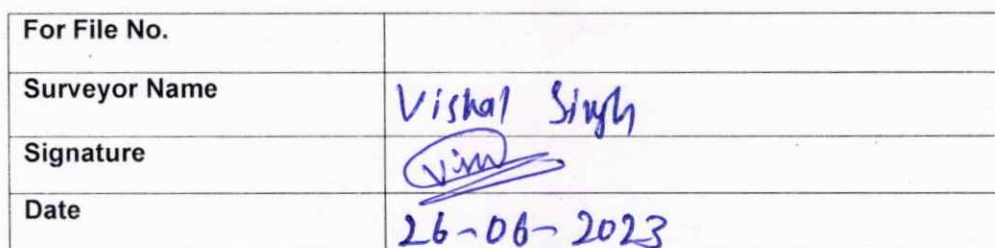 For File No.
Surveyor Name Vishal Singh
Signature
Date 26-06-2023